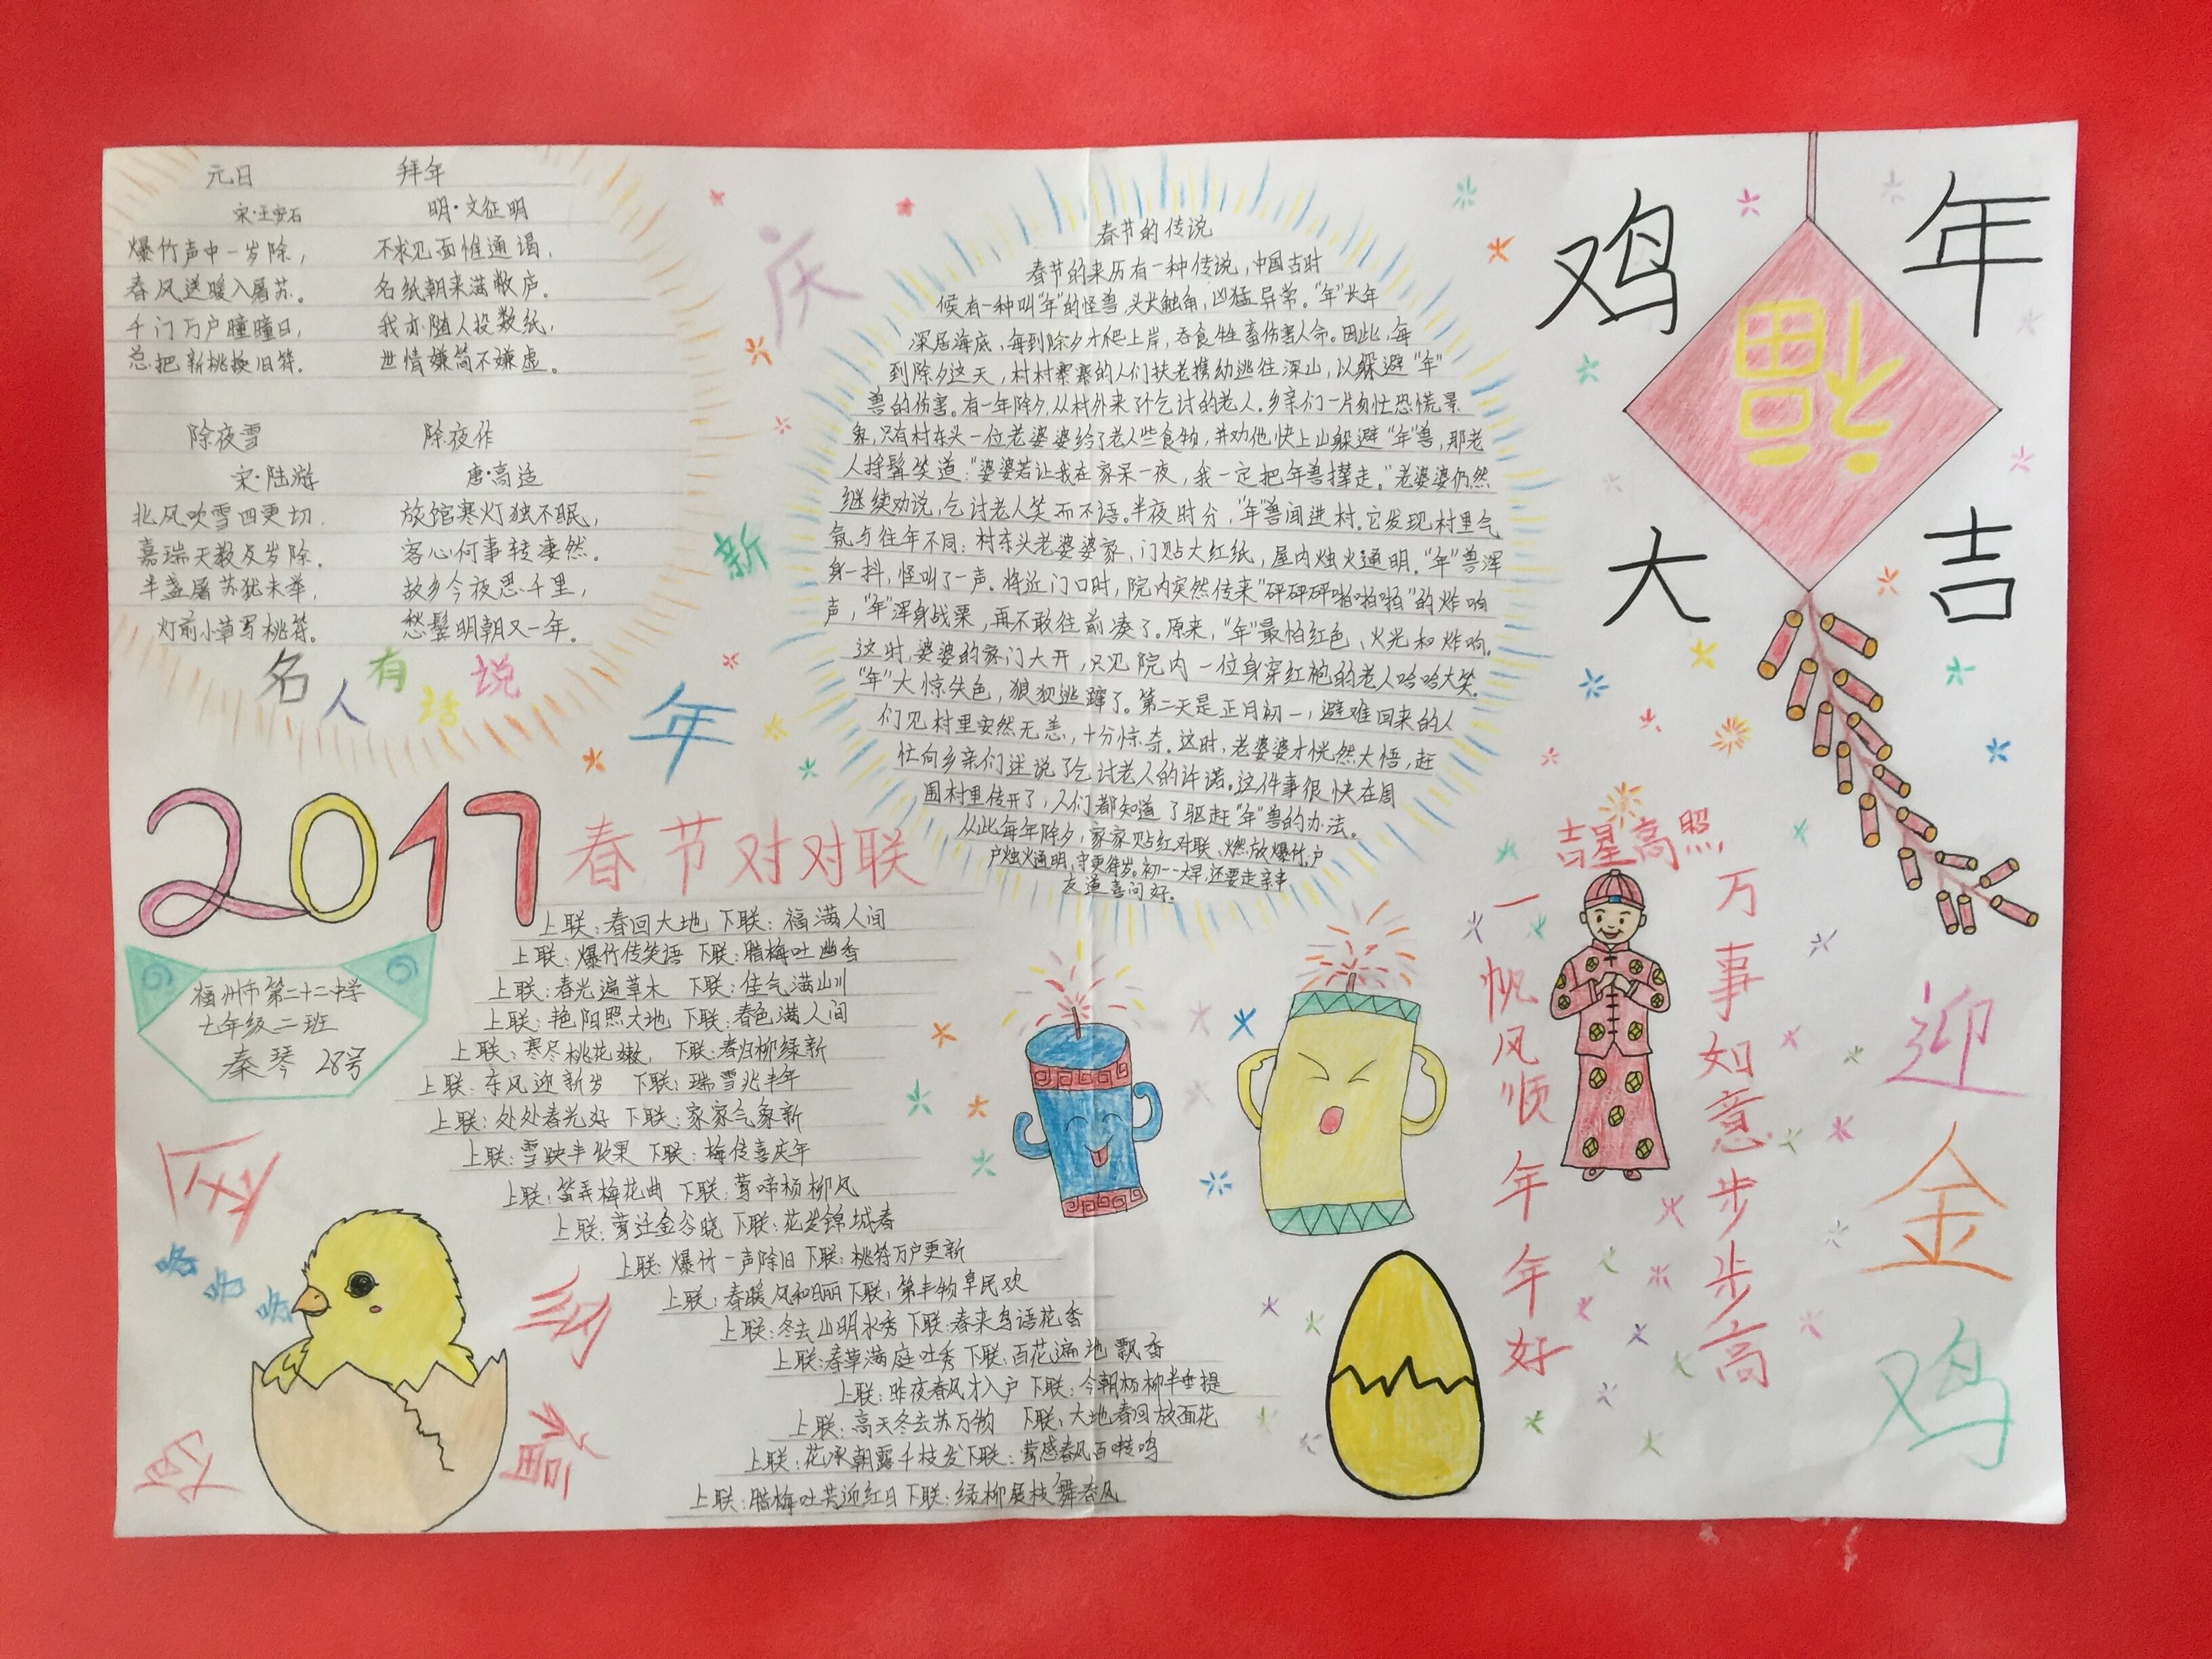 元日
宋·王安石
爆竹声中一岁除，
春风送暖入屠苏。
千门万户瞳瞳日，
总把新桃换旧符。
拜年
明·文征明
不求见面惟通谒，
名纸朝来满敝庐。
我亦随人投数纸，
世情嫌简不嫌虚。
除夜雪
宋·陆游
北风吹雪四更初，
嘉瑞天教及岁除。
半盏屠苏犹未举，
灯前小草写桃符。
除夜作
唐·高适
旅馆寒灯独不眠，
客心何事转凄然。
故乡今夜思千里，
愁鬓明朝又一年。
名人有话说
庆
新
年
春节的传说
春节的来历有一种传说，中国古时
候有一种叫"年"的怪兽，头长触角，凶猛异常。"年"长年
深居海底，每到除夕才爬上岸，吞食牲畜伤害人命。因此，每
到除夕这天，村村寨寨的人们扶老携幼逃往深山，以躲避"年"
兽的伤害。有一年除夕，从村外来了个乞讨的老人。乡亲们一片匆忙恐慌景
象，只有村东头一位老婆婆给了老人些食物，并劝他快上山躲避"年"兽，那老
人捋髯笑道："婆婆若让我在家呆一夜，我一定把年兽撵走。"老婆婆仍然
继续劝说，乞讨老人笑而不语。半夜时分，"年"兽闯进村。它发现村里气
氛与往年不同：村东头老婆婆家，门贴大红纸，屋内烛火通明。"年"兽浑
身一抖，怪叫了一声。将近门口时，院内突然传来"砰砰砰啪啪啪"的炸响
声，"年"浑身战栗，再不敢往前凑了。原来，"年"最怕红色、火光和炸响。
这时，婆婆的家门大开，只见院内一位身穿红袍的老人哈哈大笑。
"年"大惊失色，狼狈逃蹿了。第二天是正月初一，避难回来的人
们见村里安然无恙，十分惊奇。这时，老婆婆才恍然大悟，赶
忙向乡亲们述说了乞讨老人的许诺。这件事很快在周
围村里传开了，人们都知道了驱赶"年"兽的办法。
从此每年除夕，家家贴红对联、燃放爆竹；户
户烛火通明、守更待岁。初一一大早，还要走亲串
友道喜问好。
鸡年
大吉
福
2017
福州市第二十二中学
七年级二班
秦琴 28号
春节对对联
上联：春回大地 下联：福满人间
上联：爆竹传笑语 下联：腊梅吐幽香
上联：春光遍草木 下联：佳气满山川
上联：艳阳照大地 下联：春色满人间
上联：寒尽桃花嫩， 下联：春归柳绿新
上联：东风迎新岁 下联：瑞雪兆丰年
上联：处处春光好 下联：家家气象新
上联：雪映丰收果 下联：梅传喜庆年
上联：笛弄梅花曲 下联：莺啼杨柳风
上联：莺迁金谷晓 下联：花发锦城春
上联：爆竹一声除旧 下联：桃符万户更新
上联：春暖风和日丽 下联：年丰物阜民欢
上联：冬去山明水秀 下联：春来鸟语花香
上联：春草满庭吐秀 下联：百花遍地飘香
上联：昨夜春风才入户 下联：今朝杨柳半垂提
上联：高天冬去苏万物 下联：大地春回放面花
上联：花承朝露千枝发 下联：莺感春风百啭鸣
上联：腊梅吐芳迎红日 下联：绿柳展枝舞春风
咯咕咕
吉星高照
一帆风顺年年好
万事如意步步高
迎金鸡